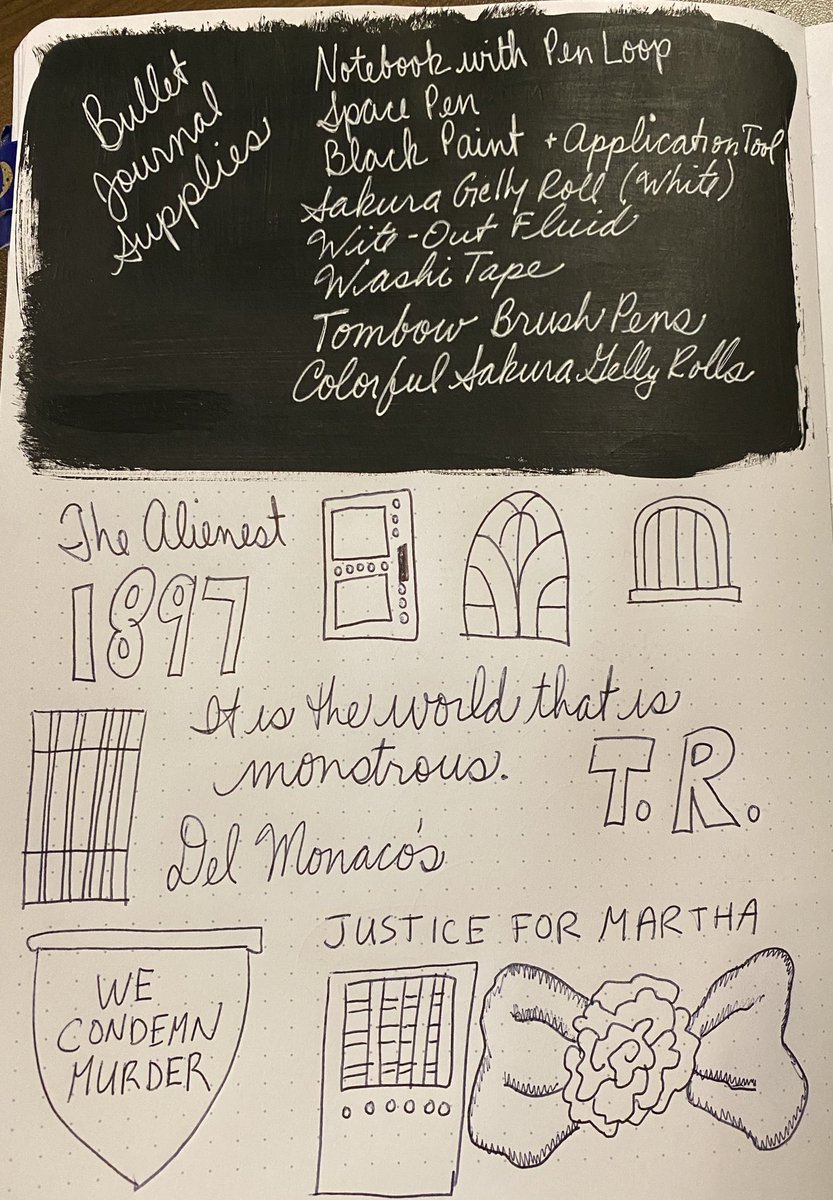 Bullet
Journal
Supplies
Notebook with Pen Loop
Space Pen
Black Paint + Application Tool
Sakura Gelly Roll (White)
Wite-Out Fluid
Washi Tape
Tombow Brush Pens
Colorful Sakura Gelly Rolls
The Alienest
1897
It is the world that is
monstrous.
T.R.
Del Monaco's
JUSTICE FOR MARTHA
WE
CONDEMN
MURDER